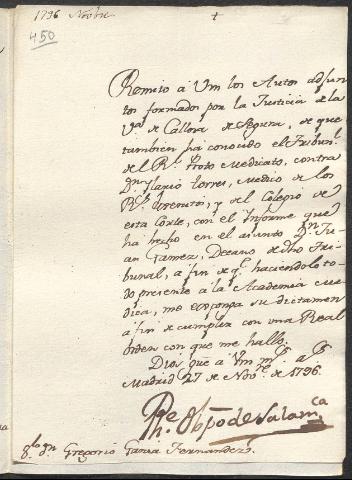 1796 Novbre
450
Remito á Vm los Autos adjun
tos formados por la Justicia de la
Va de Callosa de Segura, de que
tambien ha conocido el Tribunl
del Rl Proto Medicato, contra
Dn Ilario Torres, Medico de los
Rs. y del Colegio de
esta Corte, con el Informe que
ha hecho en el asunto Dn Ju-
an Gamez, Decano de dho Tri-
bunal, á fin de q. haciendolo to-
do presente á la Academia me-
dica, me exponga su dictamen
á fin de cumplir con una Real
orden con que me hallo.
Dios gue á Vm ms as
Madrid 27 de Nove de 1796.
Phe Obpo de Salamca
Sor Dn Gregorio Garcia Fernandez.